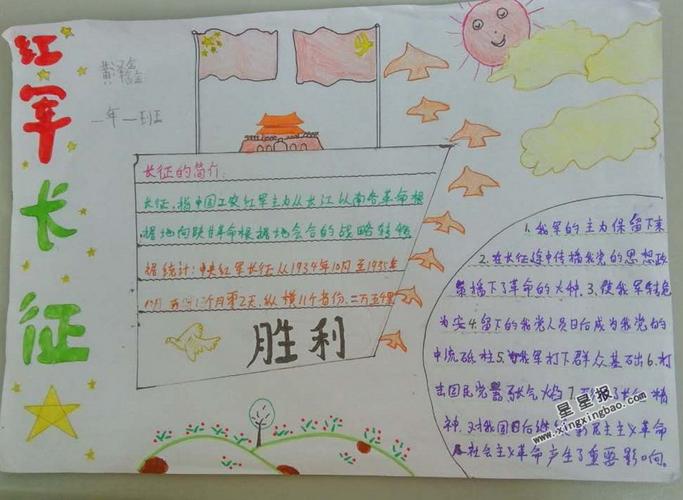 红军长征
一年一班
长征的简介:
长征,指中国工农红军主力从长江以南各革命根
据地向陕甘革命根据地会合的战略转移
据统计:中央红军长征从1934年10月至1935年
纵横11个省份,二万五千里
胜利
1、我军的主力保留下来
2.在长征途中传播我党的思想政
策播下了革命的火种.3、使我军转危
为安4.留下的我党人员日后成为我党的
中流砥柱5.为我军打下群众基础6.打
击国民党嚣张气焰7
神,对我国日后继续新民主主义革命
社会主义革命产生了重要影响.
星星报
www.xingxingbao.com